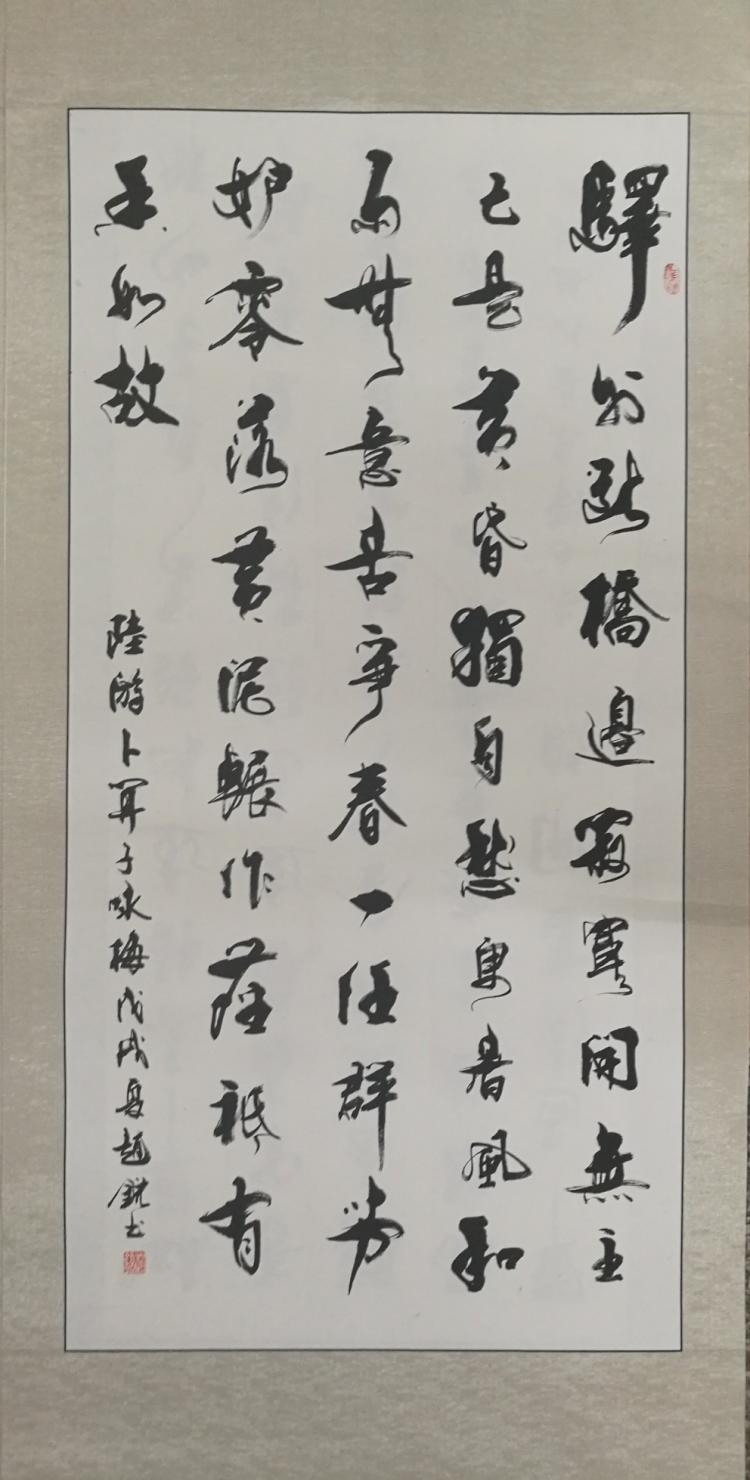 驛外斷橋邊寂寞開無主
已是黃昏獨自愁更著風和
雨無意苦爭春一任群芳
妒零落黃泥輾作塵祗有
香如故
陸游卜算子咏梅戊戌夏趙銳書